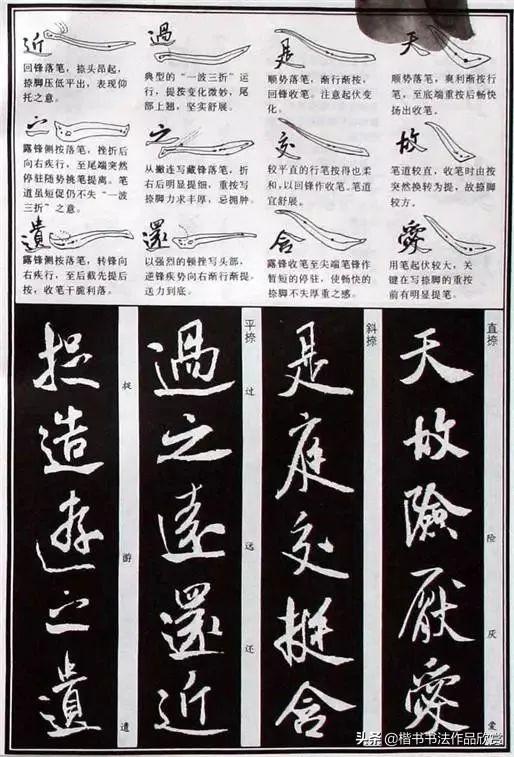 近
回锋落笔，捺头昂起，
捺脚压低平出，表现仰
托之意。
過
典型的“一波三折”运
行，提按变化微妙，尾
部上翘，坚实舒展。
是
顺势落笔，渐行渐按，
回锋收笔。注意起伏变
化。
天
顺势落笔，爽利渐按行
笔，至底端重按后畅快
扬出收笔。
之
露锋侧按落笔，挫折后
向右疾行，至尾端突然
停驻随势挑笔提离。笔
道虽短促仍不失“一波
三折”之意。
之
从撇连写藏锋落笔，折
右后明显提细，重按写
捺脚力求丰厚，忌拥肿。
交
较平直的行笔按得也柔
和，以回锋作收笔。笔道
宜舒展。
故
笔道较直，收笔时由按
突然换转为提，故捺脚
较方。
遺
露锋侧按落笔，转锋向
右疾行，至后截先提后
按，收笔干脆利落。
還
以强烈的顿挫写头部，
逆锋疾势向右渐行渐提，
送力到底。
含
露锋收笔至尖端笔锋作
暂短的停驻，使畅快的
捺脚不失厚重之感。
愛
用笔起伏较大，关
键在写捺脚的重按
前有明显提笔。
直捺
天故險厭愛
险
厌
爱
斜捺
是庭交挺含
平捺
過之遠還近
过
远
还
捉造遊之遺
捉
游
遗
头条@楷书书法作品欣赏